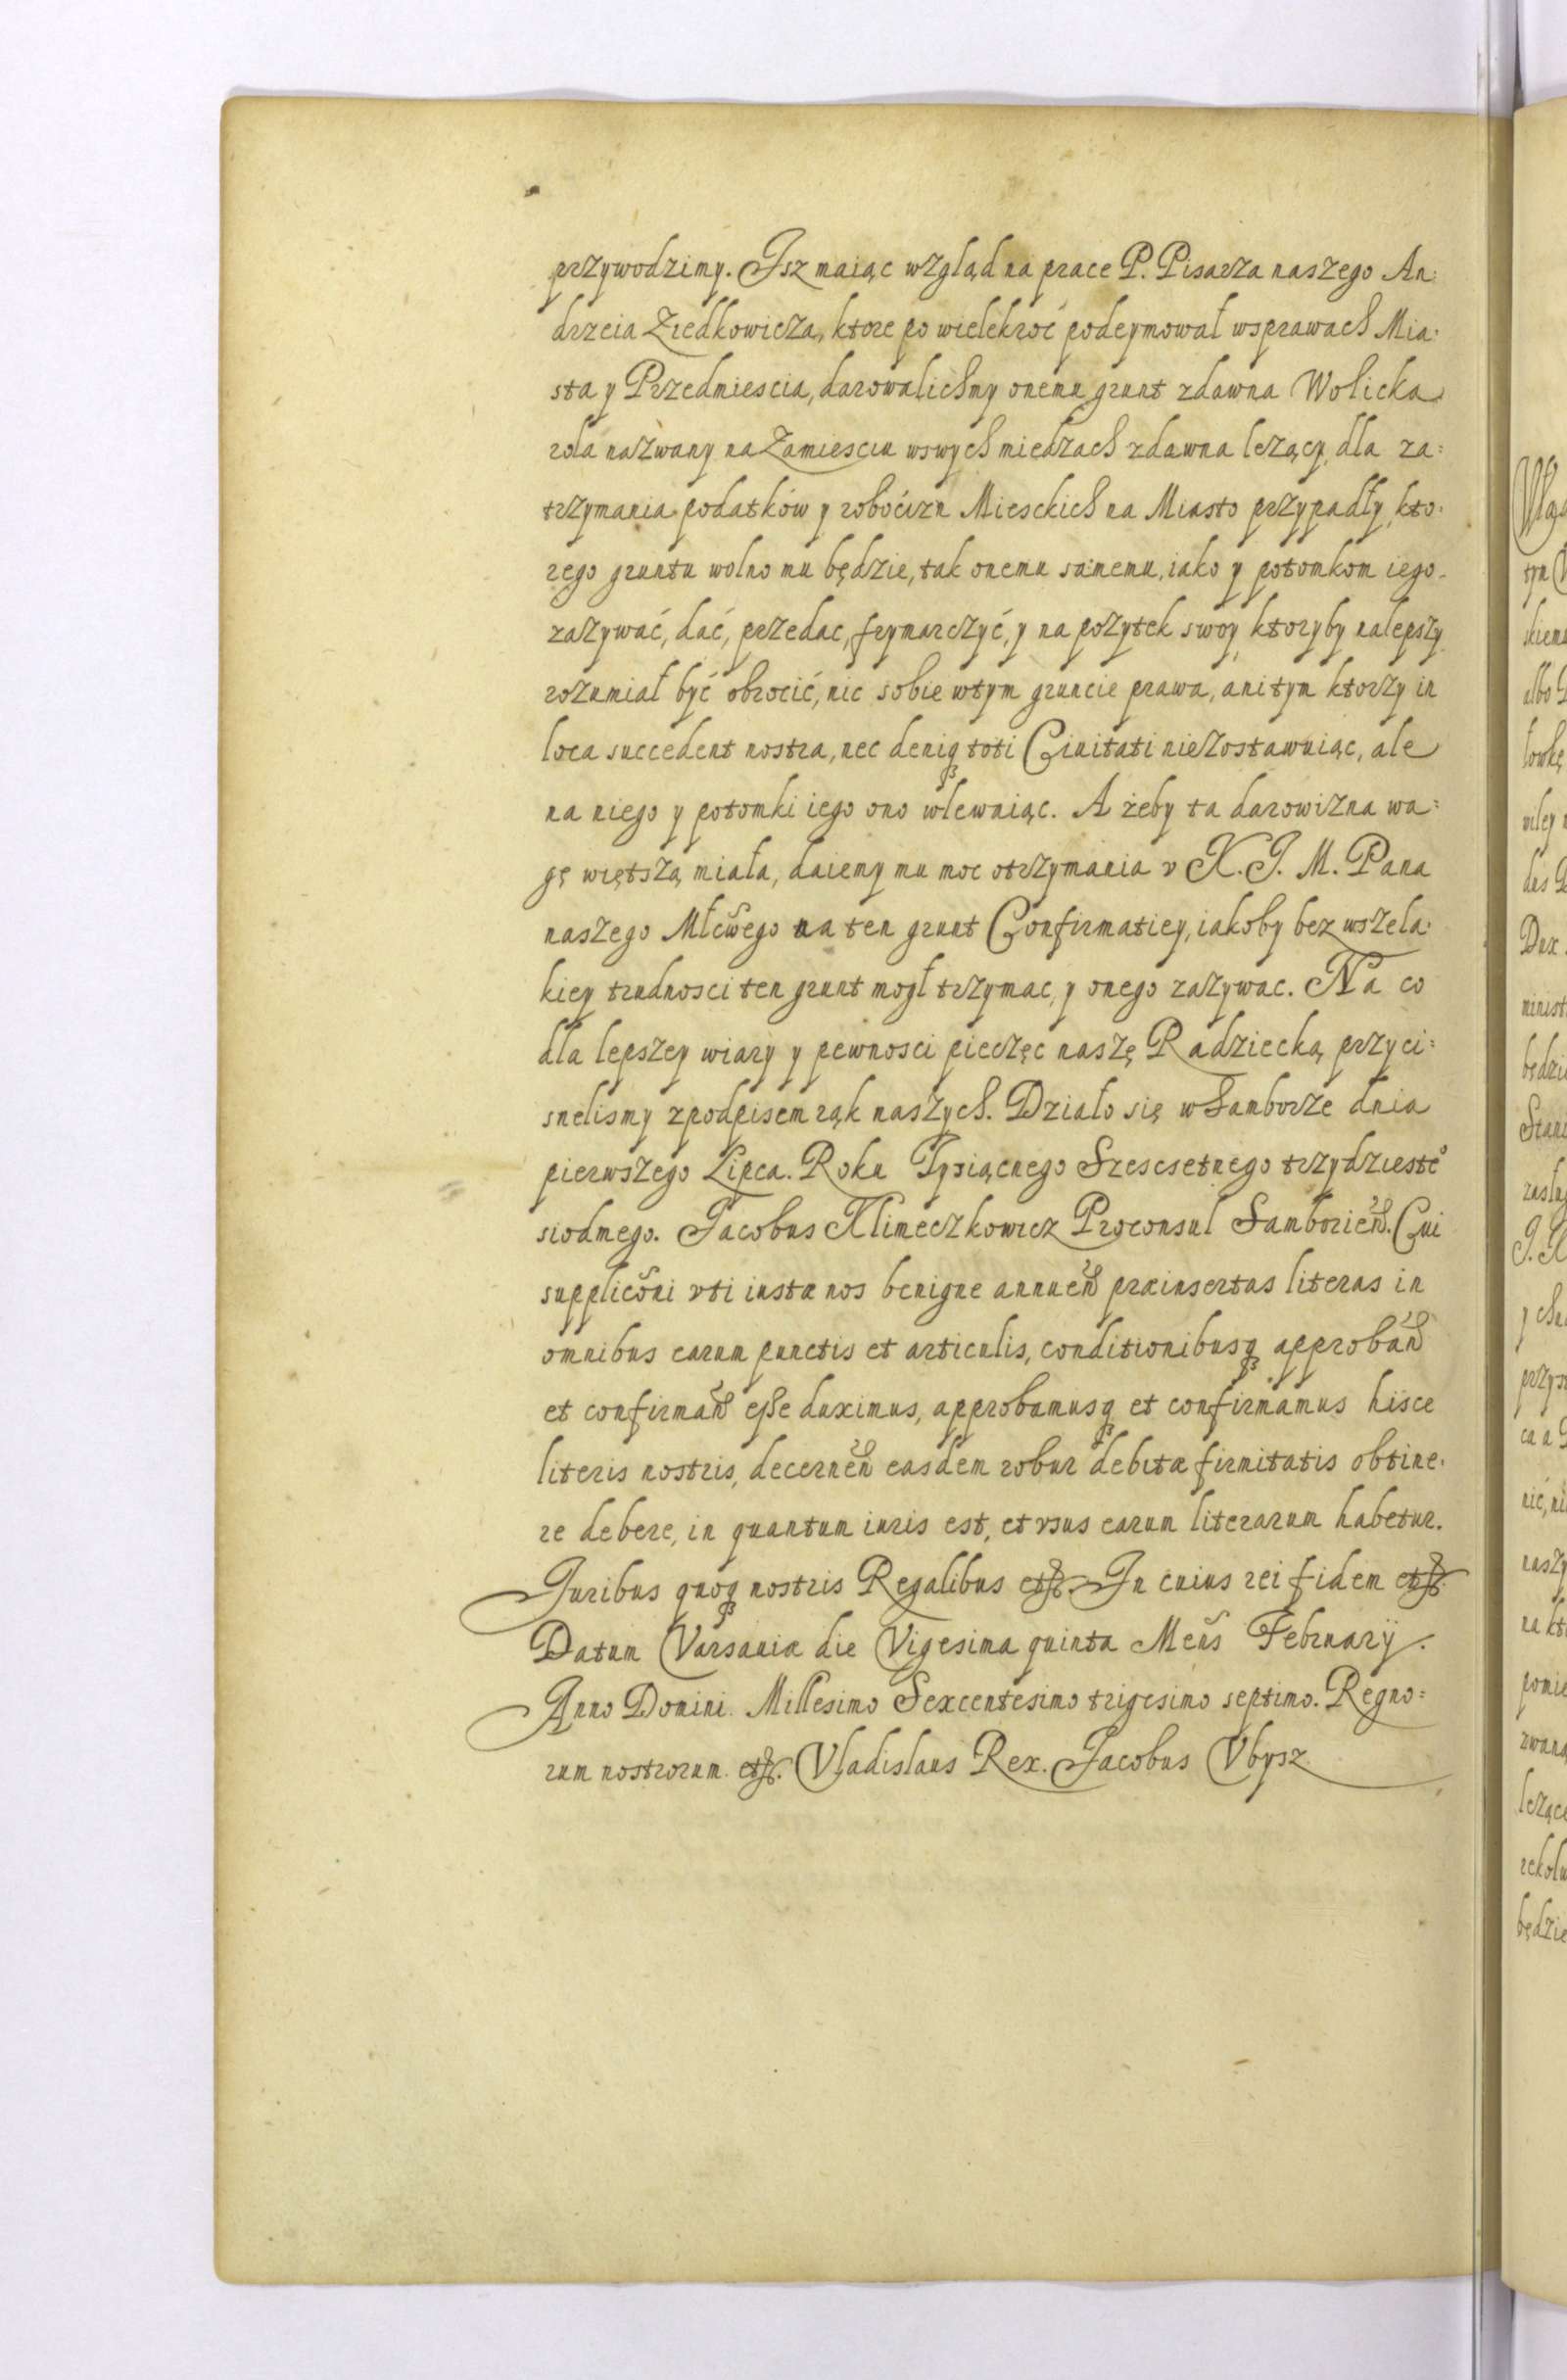 przywodzimy. Jsz maiąc wzgląd na prace P. Pisarza naszego An:
drzeia Zredkowicza, ktore po wielekroć podeymował wsprawach Mia:
sta y Przedmiescia, darowalichmy onemu grunt zdawna Wolicka
rola nazwany na Zamiesciu wswych miedzach zdawna lezący, dla za:
trzymania podatków y roboćizn Miesckich na Miasto przypadły, kto:
rego gruntu wolno mu będzie, tak onemu samemu, iako y potomkom iego.
zazywać, dać, przedac, frymarczyć, y na pozytek swoy, ktoryby nalepszy
rozumiał być obrocić, nic sobie wtym gruncie prawa, ani tym ktorzy in
loca succedent nostra, nec deniq toti Ciuitati niezostawuiąc, ale
na niego y potomki iego ono wlewniąc. A żeby ta darowizna wa:
gę więtszą miała, daiemy mu moc otrzymania v K. J. M. Pana
naszego Młcwego na ten grunt Confirmatiey, iakoby bez wszela:
kiey trudnosci ten grunt mogł trzymac, y onego zazywac. Na co
dla lepszey wiary y pewnosci pieczęc naszę Radziecką przyci:
snelismy zpodpisem rąk naszych. Działo się w Samborze dnia
pierwszego Lipca. Roku Tysiącnego Szescsetnego trzydziesteo
siodmego. Jacobus Klimeczkowicz Proconsul Samborien. Cui
suppliconi vti iustæ nos benigne annuen præinsertas literas in
omnibus earum punctis et articulis, conditionibusq approban
et confirman esse duximus, approbamusq et confirmamus hisce
literis nostris, decernen easdem robur debitæ firmitatis obtine:
re debere, in quantum iuris est, et vsus earum literarum habetur.
Juribus quoq nostris Regalibus etc. In cuius rei fidem etc.
Datum Varsauiæ die Vigesima quinta Mens Februarij.
Anno Domini Millesimo Sexcentesimo trigesimo septimo. Regno:
rum nostrorum etc. Vladislaus Rex. Jacobus Vbysz